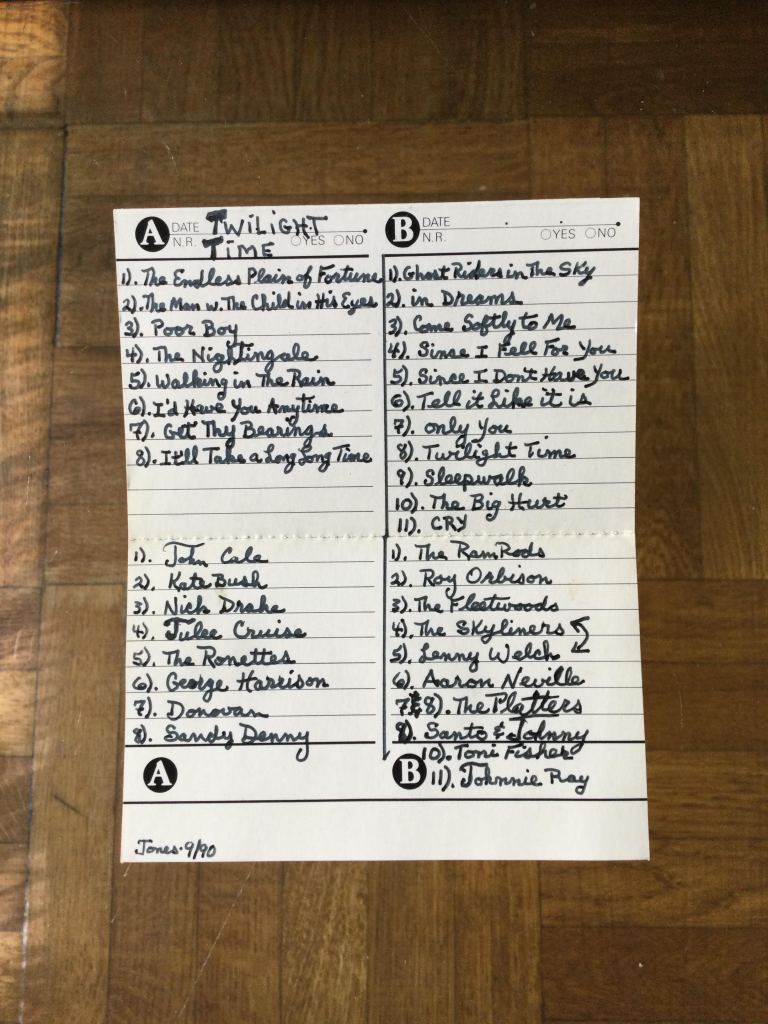 A DATE TWILIGHT
N.R. TIME ○YES ○NO
1). The Endless Plain of Fortune
2). The Man w. The Child in His Eyes
3). Poor Boy
4). The Nightingale
5). Walking in The Rain
6). I'd Have You Anytime
7). Get Thy Bearings
8). It'll Take a Long Long Time
B DATE
N.R. ○YES ○NO
1). Ghost Riders in The Sky
2). in Dreams
3). Come Softly to Me
4). Since I Fell For You
5). Since I Don't Have You
6). Tell it Like it is
7). only You
8). Twilight Time
9). Sleepwalk
10). The Big Hurt
11). CRY
1). John Cale
2). Kate Bush
3). Nick Drake
4). Julee Cruise
5). The Ronettes
6). George Harrison
7). Donovan
8). Sandy Denny
A
1). The RamRods
2). Roy Orbison
3). The Fleetwoods
4). The Skyliners
5). Lenny Welch
6). Aaron Neville
7&8). The Platters
9). Santo & Johnny
10). Toni Fisher
B 11). Johnnie Ray
Jones·9/90